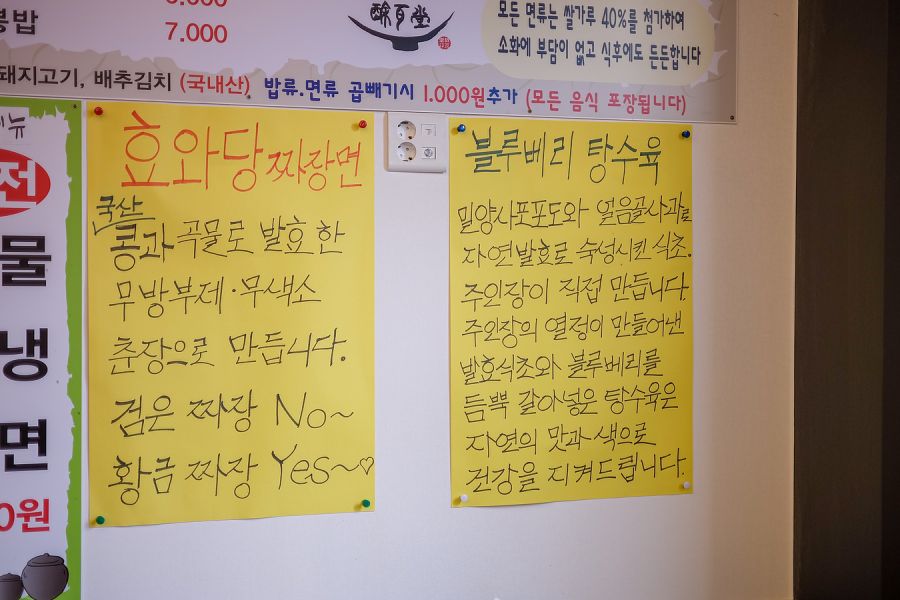 5.000
봉밥
7.000
醁百堂
모든 면류는 쌀가루 40%를 첨가하여
소화에 부담이 없고 식후에도 든든합니다
돼지고기, 배추김치 (국내산)
밥류.면류 곱빼기시 1.000원추가 (모든 음식 포장됩니다)
뉴
전
물
냉
면
0원
효와당 짜장면
국산
콩과 곡물로 발효한
무방부제·무색소
춘장으로 만듭니다.
검은 짜장 No~
황금 짜장 Yes~♡
블루베리 탕수육
밀양사포포도와 얼음골사과로
자연발효로 숙성시킨 식초.
주인장이 직접 만듭니다.
주인장의 열정이 만들어낸
발효식초와 블루베리를
듬뿍 갈아넣은 탕수육은
자연의 맛과 색으로
건강을 지켜드립니다.